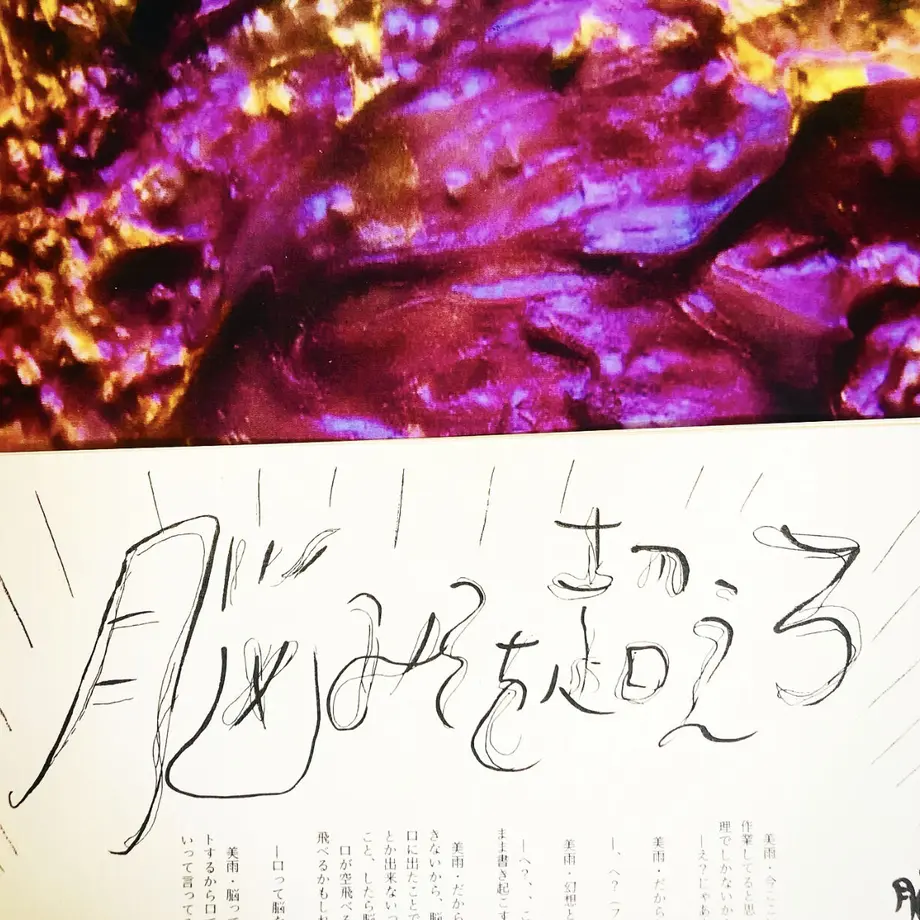 脳みそを超える
美雨・今ここ
作業してると思
理でしかないか
―え？にゃ
美雨・だから
―、へ？（フ
美雨・幻想と
―へ？、、こ
まま書き起こす
美雨・だから
きないから、脳
口に出たことで
とか出来ないっ
こと、したら脳
口が空飛べる
飛べるかもしれ
―口って脳
美雨・脳って
トするから口
いって言って